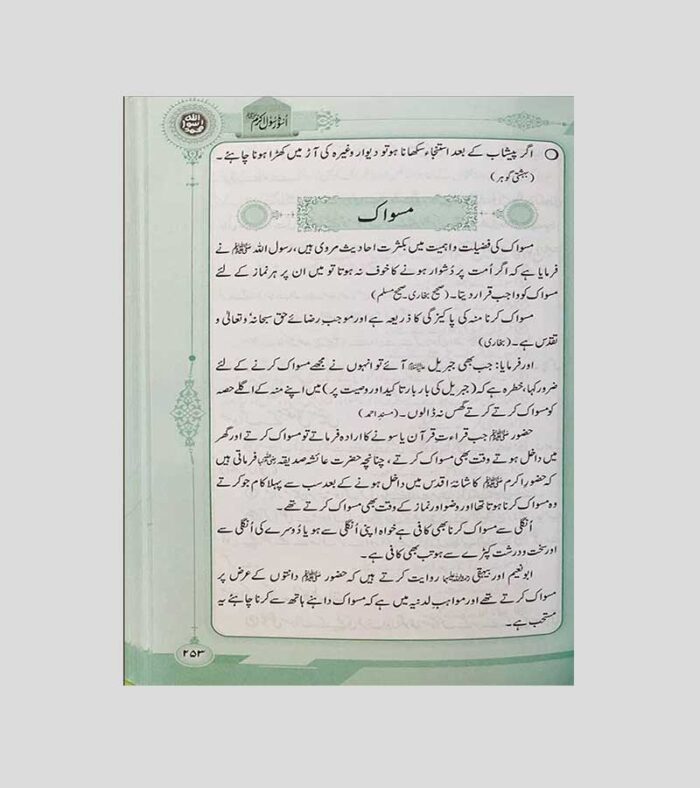 اُسوۂ رسول اکرم ﷺ
اللہ
رسول
محمد
اگر پیشاب کے بعد استنجاء سکھانا ہو تو دیوار وغیرہ کی آڑ میں کھڑا ہونا چاہئے۔
(بہشتی گوہر)
مسواک
مسواک کی فضیلت و اہمیت میں بکثرت احادیث مروی ہیں، رسول اللہ ﷺ نے
فرمایا ہے کہ اگر اُمت پر دُشوار ہونے کا خوف نہ ہوتا تو میں ان پر ہر نماز کے لئے
مسواک کو واجب قرار دیتا۔ (صحیح بخاری۔ صحیح مسلم)
مسواک کرنا منہ کی پاکیزگی کا ذریعہ ہے اور موجب رضائے حق سبحانہٗ وتعالیٰ و
تقدّس ہے۔ (بخاری)
اور فرمایا: جب بھی جبریل آئے تو انہوں نے مجھے مسواک کرنے کے لئے
ضرور کہا، خطرہ ہے کہ (جبریل کی بار بار تاکید اور وصیت پر) میں اپنے منہ کے اگلے حصہ
کو مسواک کرتے کرتے گھس نہ ڈالوں۔ (مسند احمد)
حضور ﷺ جب قراءتِ قرآن یا سونے کا ارادہ فرماتے تو مسواک کرتے اور گھر
میں داخل ہوتے وقت بھی مسواک کرتے، چنانچہ حضرت عائشہ صدیقہ فرماتی ہیں
کہ حضور اکرم ﷺ کا شانۂ اقدس میں داخل ہونے کے بعد سب سے پہلا کام جو کرتے
وہ مسواک کرنا ہوتا تھا اور وضو اور نماز کے وقت بھی مسواک کرتے تھے۔
اُنگلی سے مسواک کرنا بھی کافی ہے خواہ اپنی اُنگلی سے ہو یا دُوسرے کی اُنگلی سے
اور سخت و درشت کپڑے سے ہو تب بھی کافی ہے۔
ابو نعیم اور بیہقی روایت کرتے ہیں کہ حضور ﷺ دانتوں کے عرض پر
مسواک کرتے تھے اور مواہب لدنیہ میں ہے کہ مسواک داہنے ہاتھ سے کرنا چاہئے یہ
مستحب ہے۔
۲۵۳